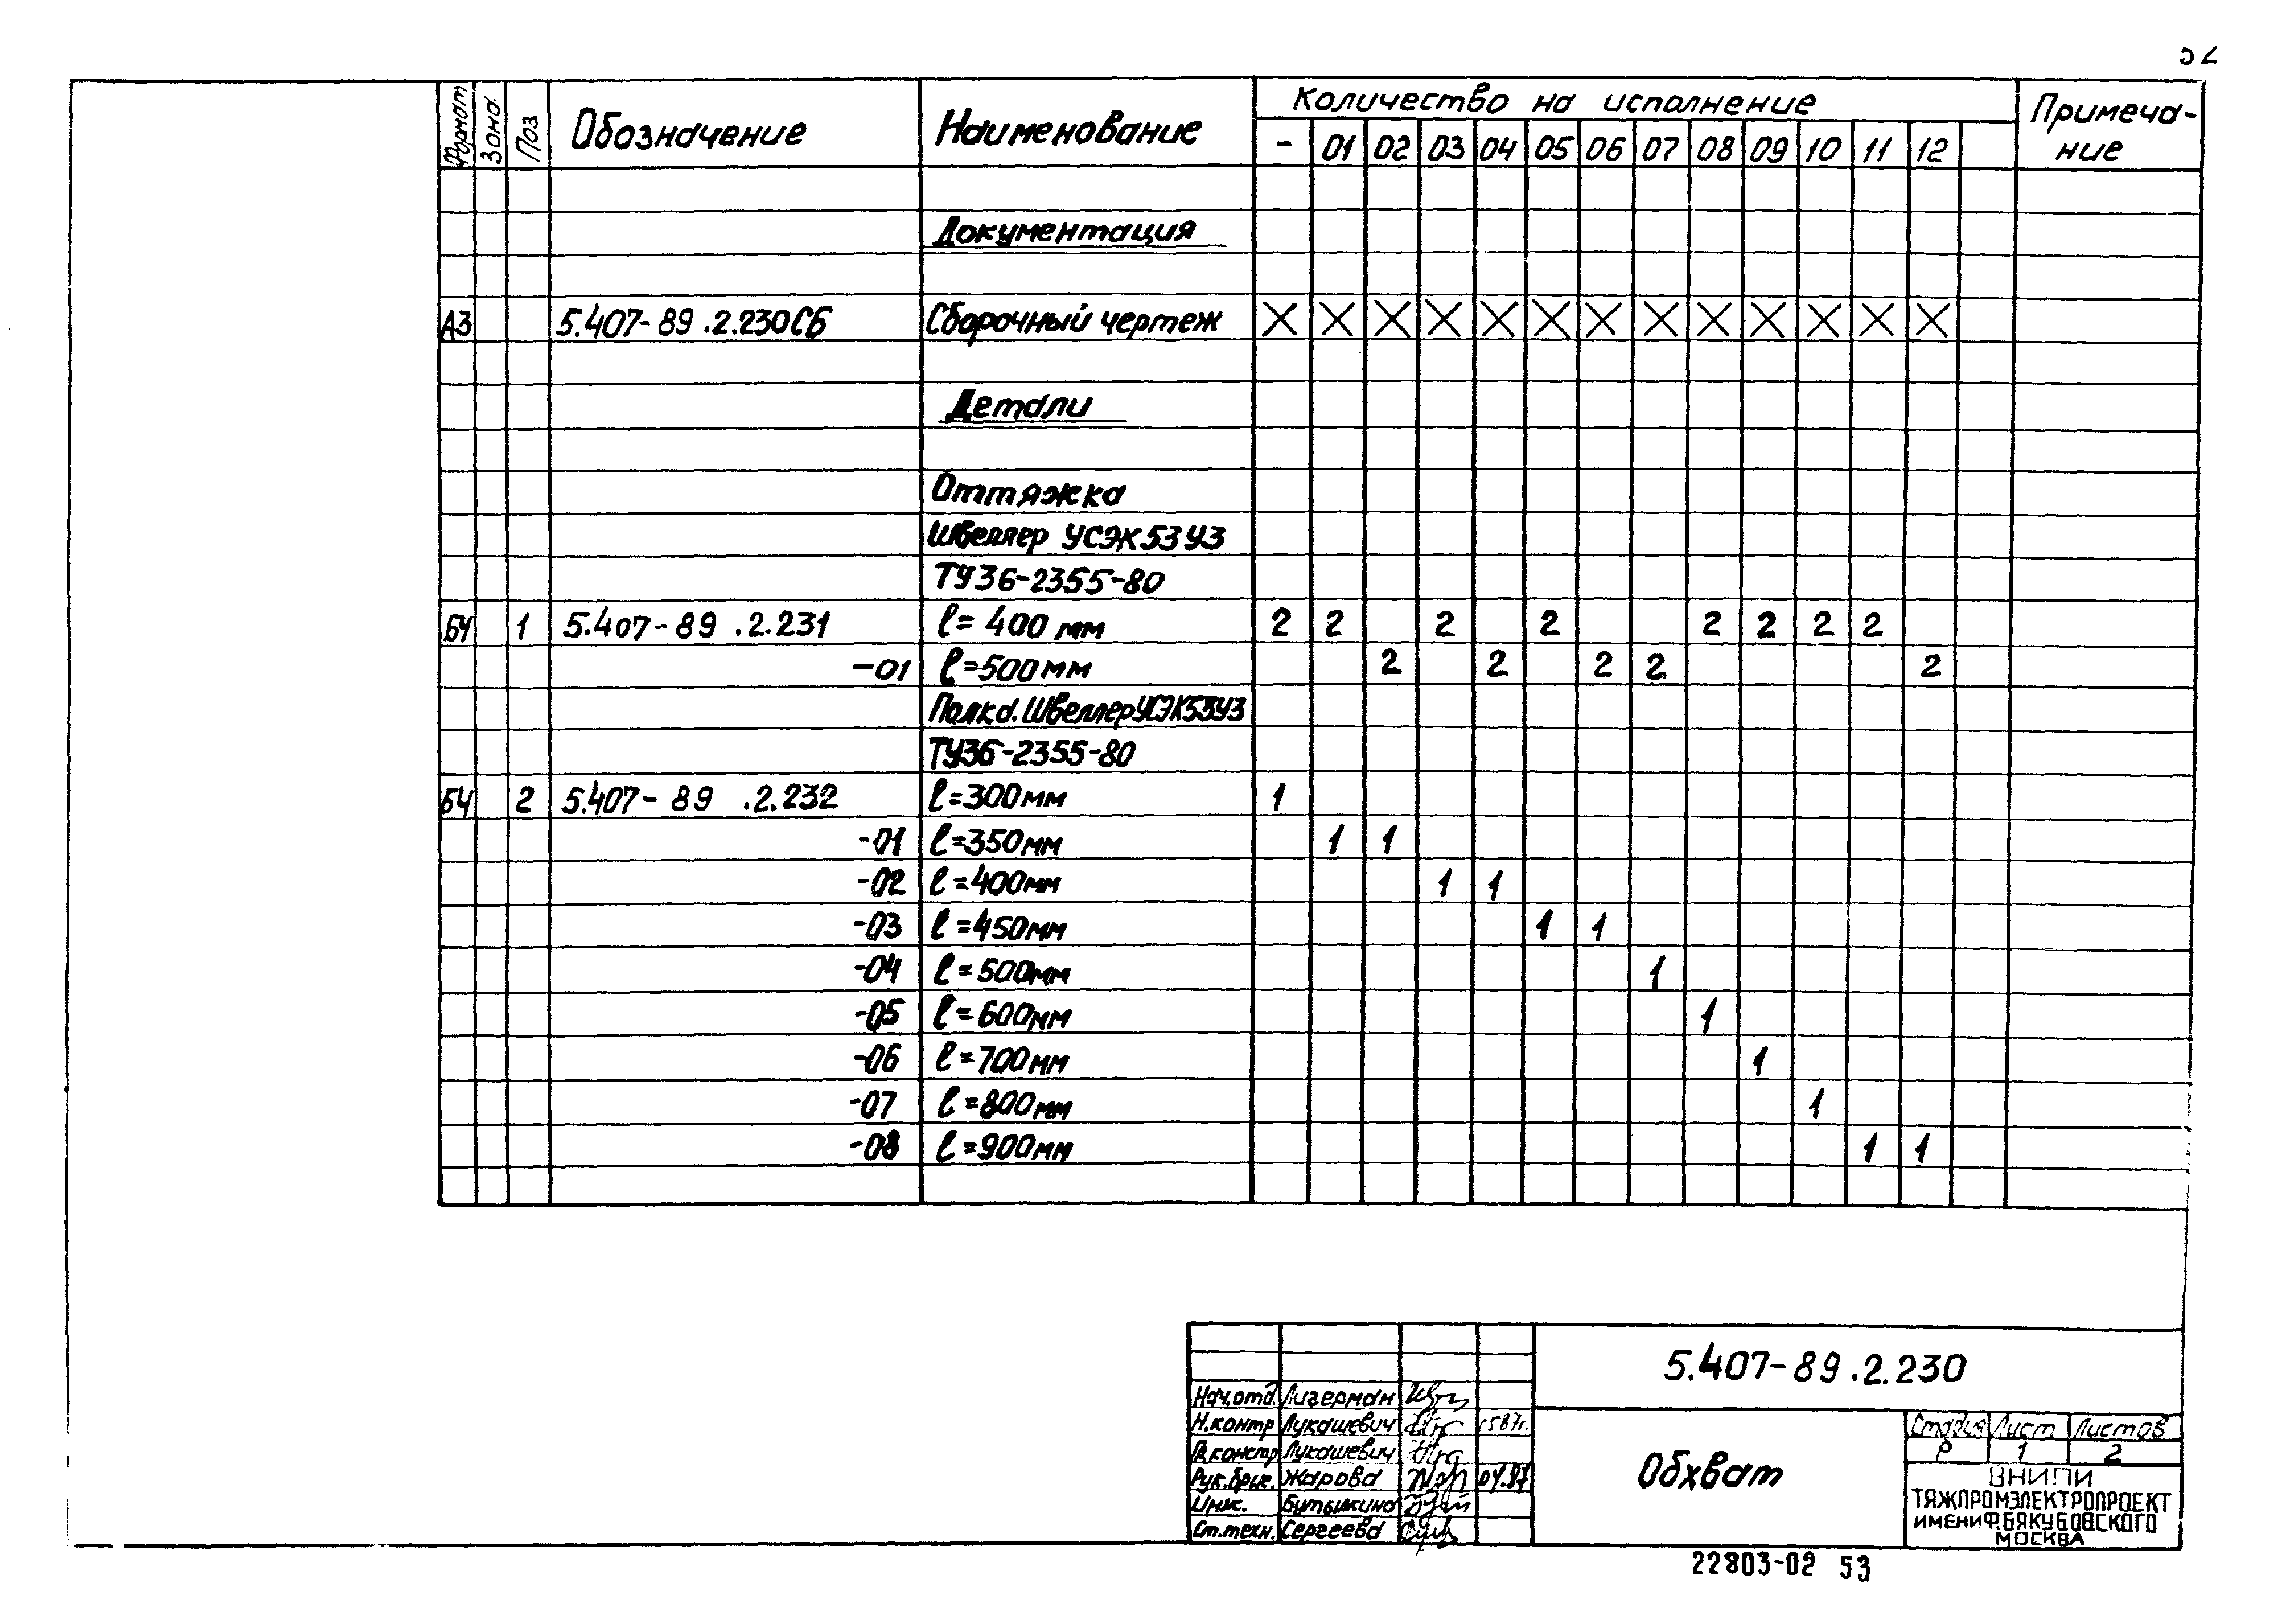 52
Формат Зона Поз. Обозначение Наименование Количество на исполнение Примеча-
ние
- 01 02 03 04 05 06 07 08 09 10 11 12
Документация
А3 5.407-89.2.230СБ Сборочный чертеж X X X X X X X X X X X X X
Детали
Оттяжка
Швеллер УСЭК53У3
ТУ36-2355-80
БЧ 1 5.407-89.2.231 ℓ=400мм 2 2 2 2 2 2 2 2
-01 ℓ=500мм 2 2 2 2 2
Полка. Швеллер УСЭК53У3
ТУ36-2355-80
БЧ 2 5.407-89.2.232 ℓ=300мм 1
-01 ℓ=350мм 1 1
-02 ℓ=400мм 1 1
-03 ℓ=450мм 1 1
-04 ℓ=500мм 1
-05 ℓ=600мм 1
-06 ℓ=700мм 1
-07 ℓ=800мм 1
-08 ℓ=900мм 1 1
5.407-89.2.230
Нач.отд. Лигерман
Н.контр Лукашевич
Гл.констр Лукашевич
Рук.бриг. Жарова 04.87
Инж. Бутышкина
Ст.техн. Сергеева
Обхват
Стадия Лист Листов
Р 1 2
ВНИПИ
ТЯЖПРОМЭЛЕКТРОПРОЕКТ
ИМЕНИ Ф.Б.ЯКУБОВСКОГО
МОСКВА
22803-02 53